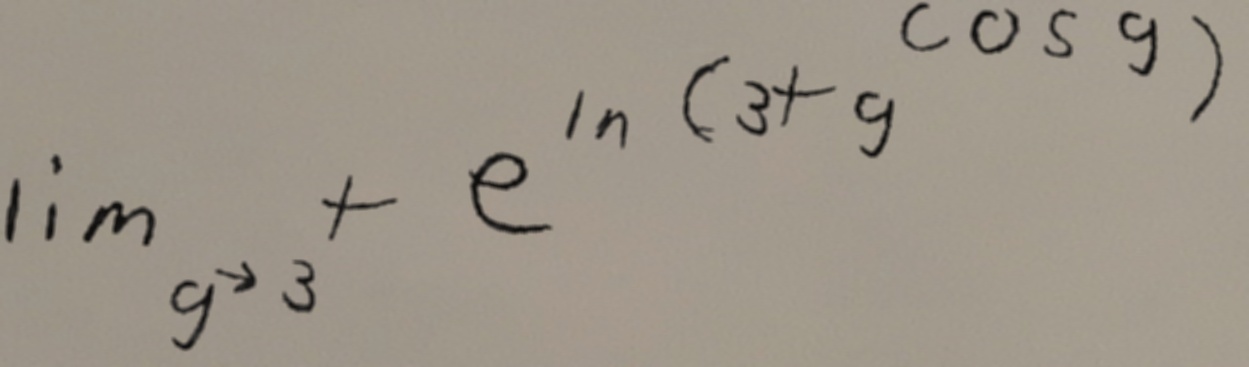 \lim_{g \to 3^{+}} e^{\ln (3 + g^{\cos g})}